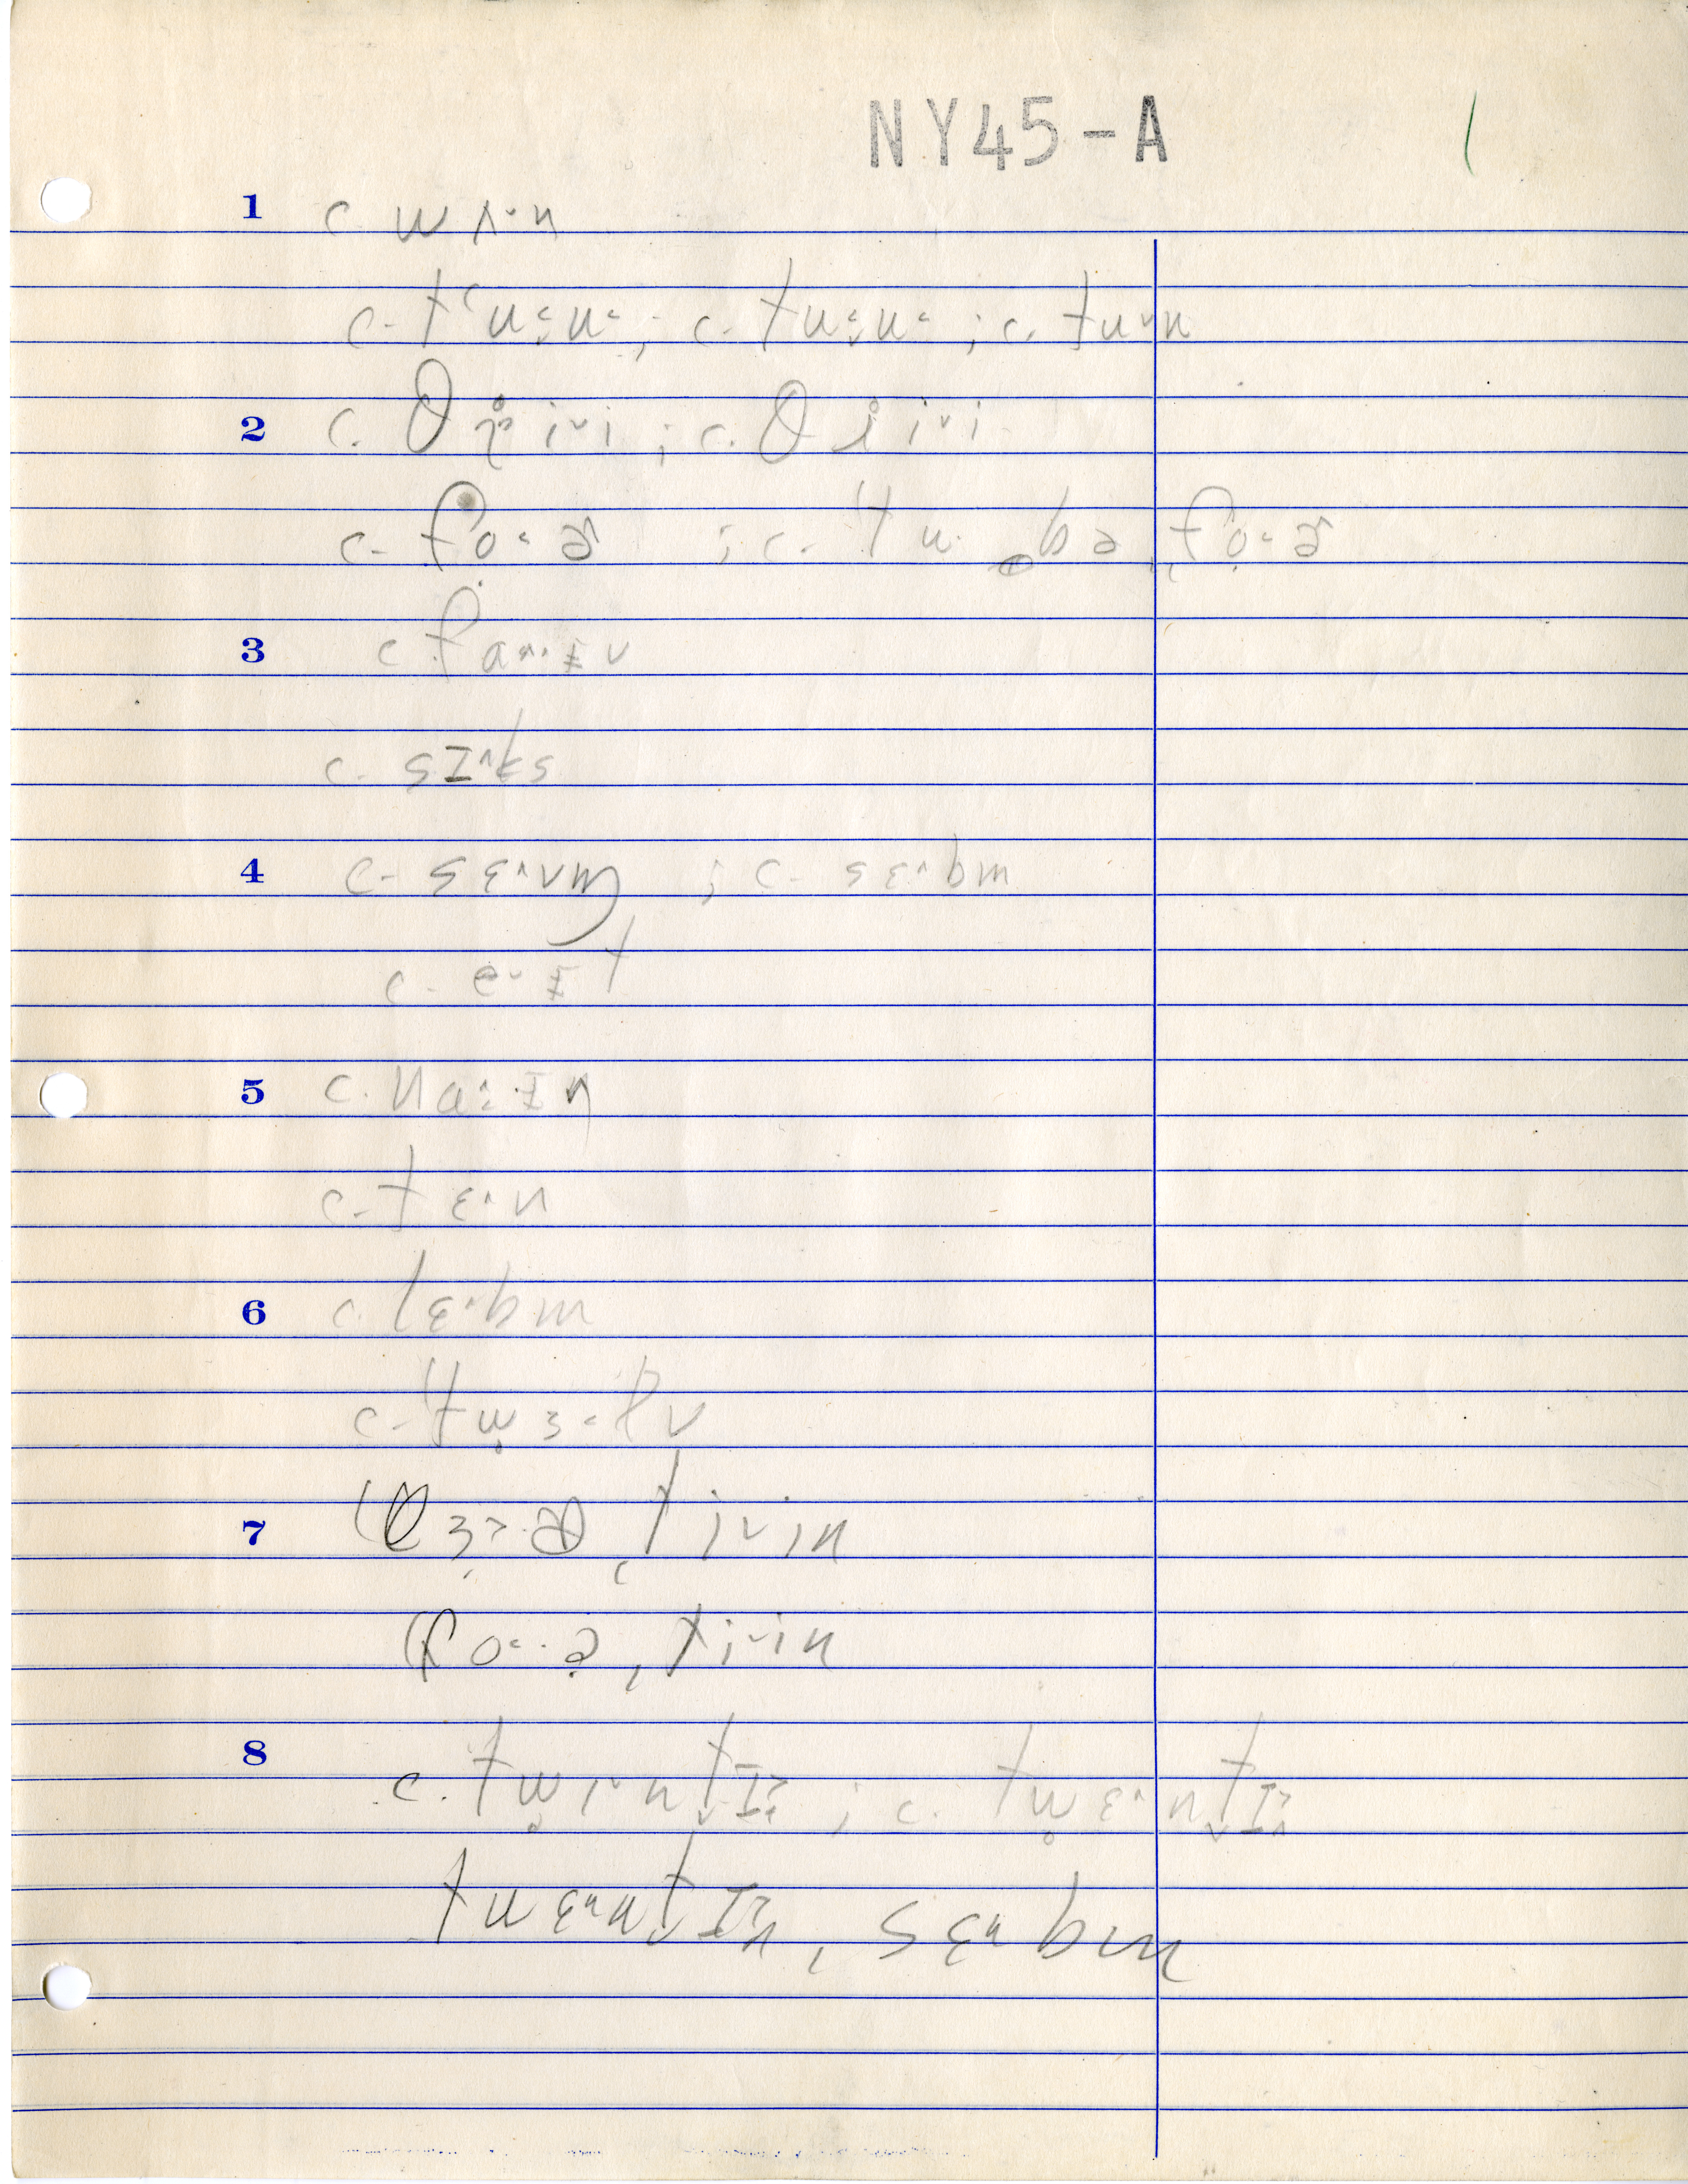 NY45-A 1
1 c. wʌ˅n
c. tʻu˂u˂ ; c. tu˂u˂ ; c. tu˅u
2 c. θr̥i˅i ; c. θɹ̥i˅i
c. fo˂ɚ ; c. tu bə fo˂ɚ
3 c. fa˄ɪv
c. sɪ˄ks
4 c. sɛ˄vm ; c. sɛ˄bm
c. e˅ɪt
5 c. na˄ɪn
c. tɛ˄n
6 c. lɛ˄bm
c. twɜ˂lv
7 θɜ˃ə, ti˅in
fo˂ə, ti˅in
8 c. twɪ˅ntɪ ; c. twɛ˄ntɪ
twɛ˄ntɪ, sɛ˄bm